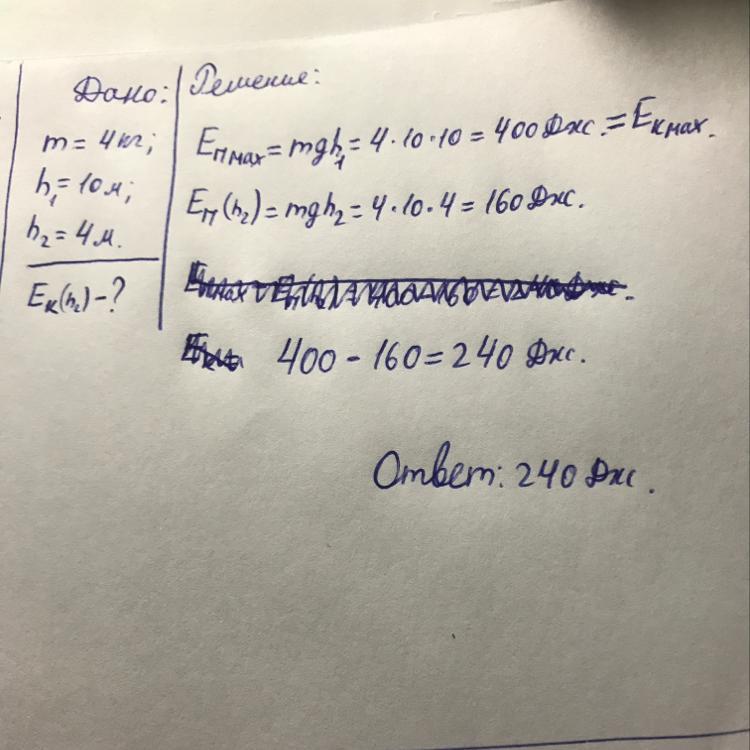 Дано:
m = 4 кг;
h₁ = 10 м;
h₂ = 4 м.
Eк(h₂) - ?
Решение:
Eп мах = mgh₁ = 4 · 10 · 10 = 400 Дж. = Eк мах.
Eп(h₂) = mgh₂ = 4 · 10 · 4 = 160 Дж.
400 - 160 = 240 Дж.
Ответ: 240 Дж.